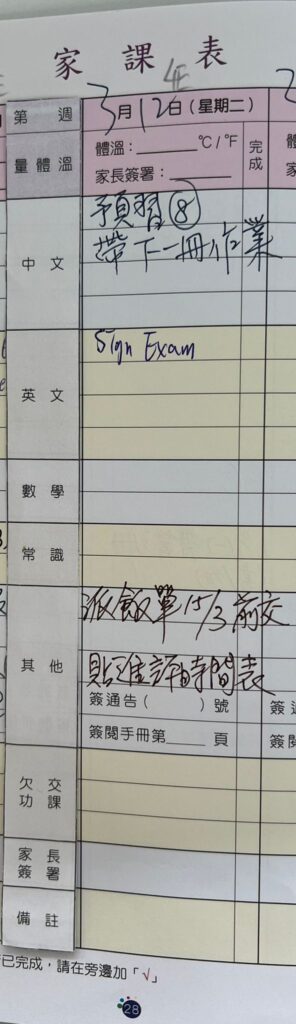 家課表
4E
第 週
3月12日(星期二)
量體溫
體溫:______°C/°F
家長簽署:______
完成
中文
預習⑧
帶下一冊作業
英文
Sign Exam
數學
常識
其他
派飯單15/3前交
貼進評時間表
簽通告( )號
簽閱手冊第____頁
欠交功課
家長簽署
備註
已完成,請在旁邊加「√」
28